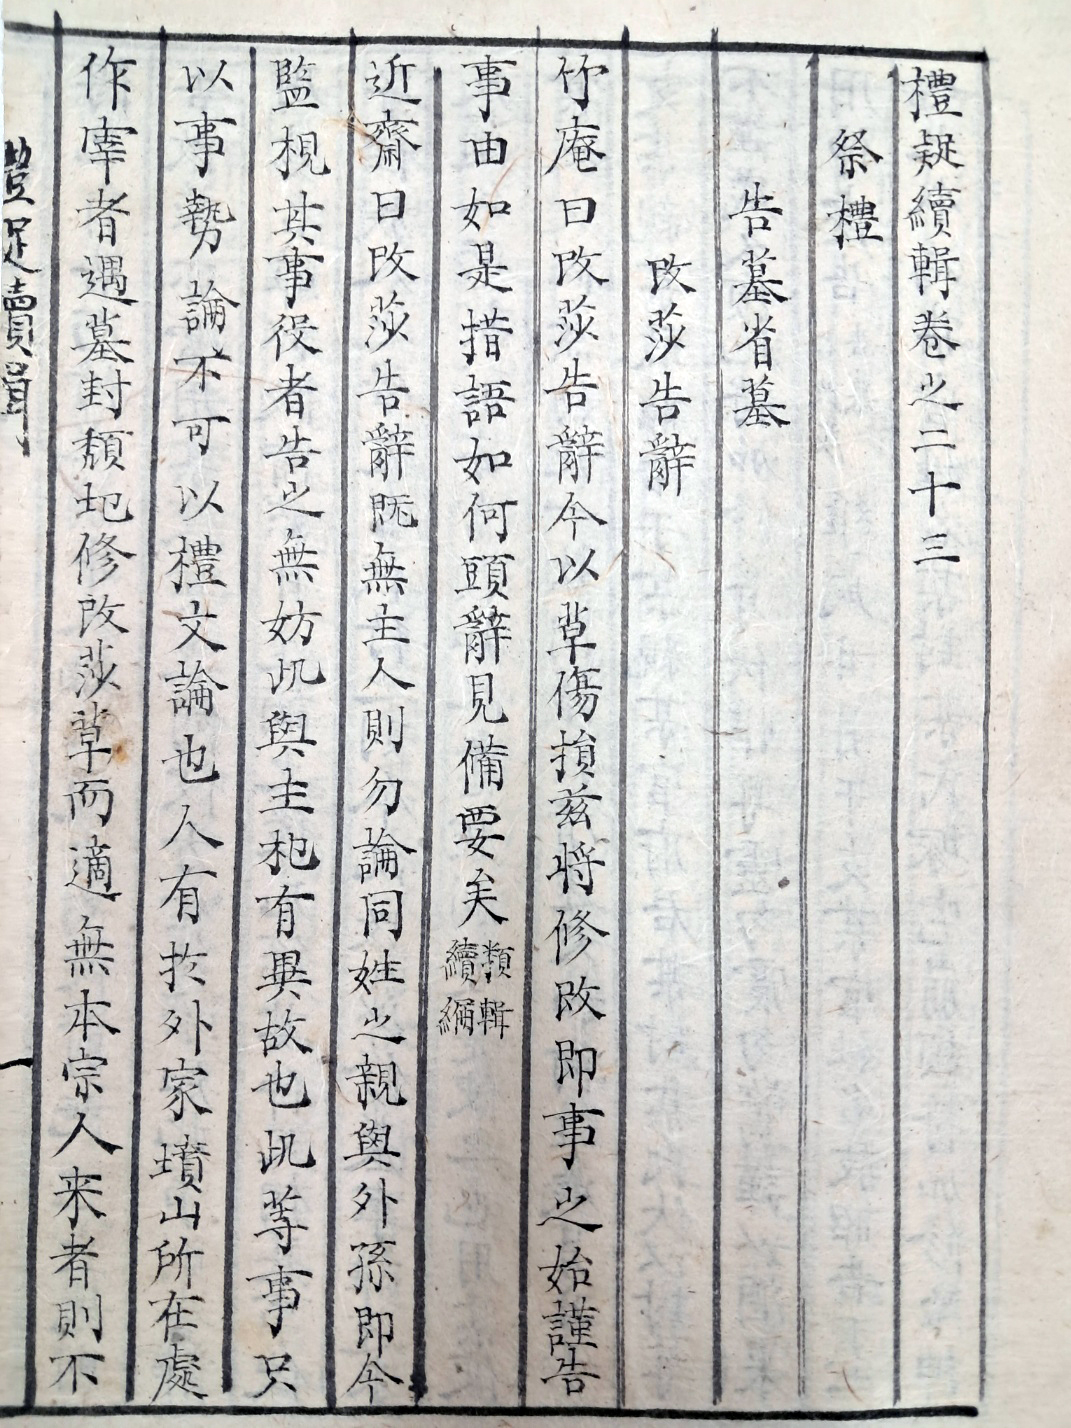 禮疑續輯卷之二十三
祭禮
告墓省墓
改莎告辭
竹庵曰改莎告辭今以草傷損玆将修改即事之始謹告
事由如是措語如何頭辭見備要矣類輯續編
近齋曰改莎告辭既無主人則勿論同姓之親與外孫即今
監視其事役者告之無妨此與主祀有異故也此等事只
以事勢論不可以禮文論也人有於外家墳山所在處
作宰者遇墓封頹圯修改莎草而適無本宗人来者則不
禮疑續輯